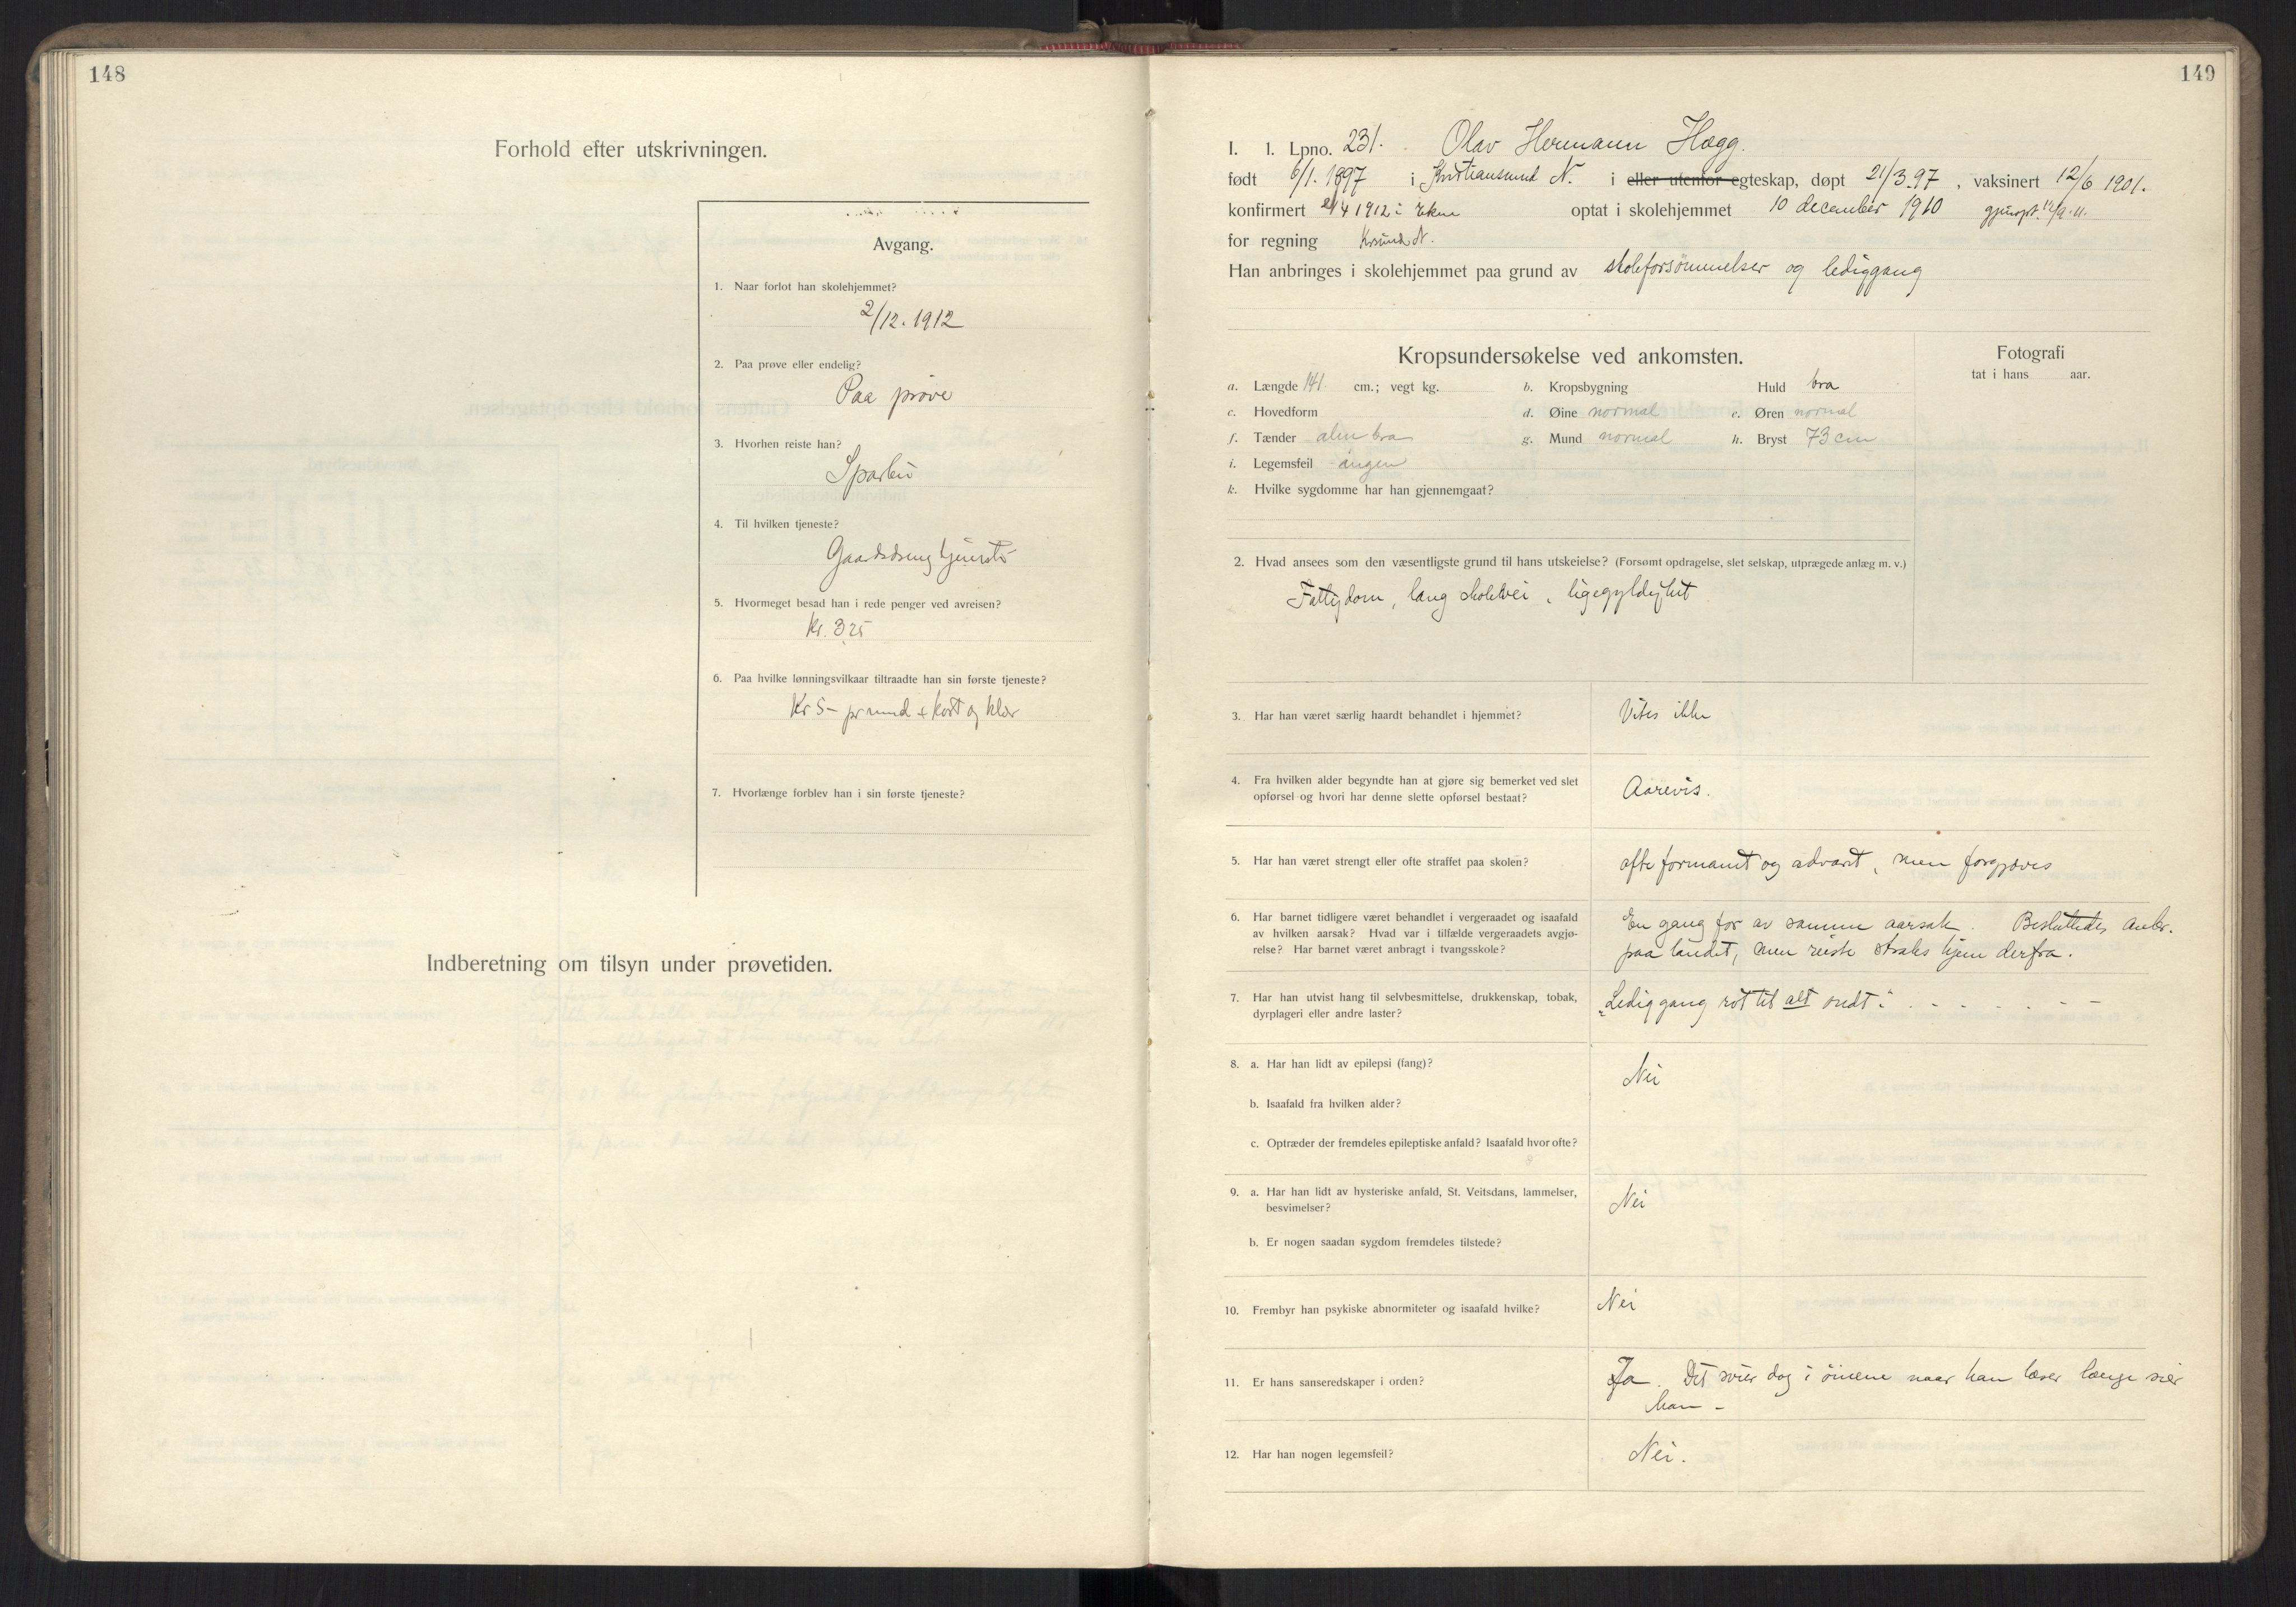 148
Forhold efter utskrivningen.
Avgang.
1. Naar forlot han skolehjemmet?
2/12. 1912
2. Paa prøve eller endelig?
Paa prøve
3. Hvorhen reiste han?
Sparbu
4. Til hvilken tjeneste?
Gaardsdreng tjeneste
5. Hvormeget besad han i rede penger ved avreisen?
Kr. 3.25
6. Paa hvilke lønningsvilkaar tiltraadte han sin første tjeneste?
Kr 5- pr mnd + kost og klær
7. Hvorlænge forblev han i sin første tjeneste?
Indberetning om tilsyn under prøvetiden.
149
I. 1. Lpno. 231. Olav Hermann Hægg.
født 6/1. 1897 i Kristiansund N. i eller utenfor egteskap, døpt 21/3.97, vaksinert 12/6 1901.
konfirmert 21/4 1912 i Ekne optat i skolehjemmet 10 december 1910 gjenopt. 12/9.11.
for regning Krsund N.
Han anbringes i skolehjemmet paa grund av skoleforsømmelser og lediggang
Kropsundersøkelse ved ankomsten.
Fotografi
tat i hans aar.
a. Længde 141 cm.; vegt kg. b. Kropsbygning Huld bra
c. Hovedform d. Øine normal e. Øren normal
f. Tænder bra g. Mund normal h. Bryst 73 cm
i. Legemsfeil ingen
k. Hvilke sygdomme har han gjennemgaat?
2. Hvad ansees som den væsentligste grund til hans utskeielse? (Forsømt opdragelse, slet selskap, utprægede anlæg m. v.)
Fattigdom, lang skolevei, ligegyldighet
3. Har han været særlig haardt behandlet i hjemmet?
Vites ikke
4. Fra hvilken alder begyndte han at gjøre sig bemerket ved slet
opførsel og hvori har denne slette opførsel bestaat?
Aarevis.
5. Har han været strengt eller ofte straffet paa skolen?
ofte formanet og advaret, men forgjæves
6. Har barnet tidligere været behandlet i vergeraadet og isaafald
av hvilken aarsak? Hvad var i tilfælde vergeraadets avgjø-
relse? Har barnet været anbragt i tvangsskole?
En gang før av samme aarsak. Besluttedes anbr.
paa landet, men reiste straks hjem derfra.
7. Har han utvist hang til selvbesmittelse, drukkenskap, tobak,
dyrplageri eller andre laster?
„Lediggang rot til alt ondt" - - - - - -
8. a. Har han lidt av epilepsi (fang)?
Nei
b. Isaafald fra hvilken alder?
c. Optræder der fremdeles epileptiske anfald? Isaafald hvor ofte?
9. a. Har han lidt av hysteriske anfald, St. Veitsdans, lammelser,
besvimelser?
Nei
b. Er nogen saadan sygdom fremdeles tilstede?
10. Frembyr han psykiske abnormiteter og isaafald hvilke?
Nei
11. Er hans sanseredskaper i orden?
Ja. Det svier dog i øinene naar han læser længe sier
han -
12. Har han nogen legemsfeil?
Nei.